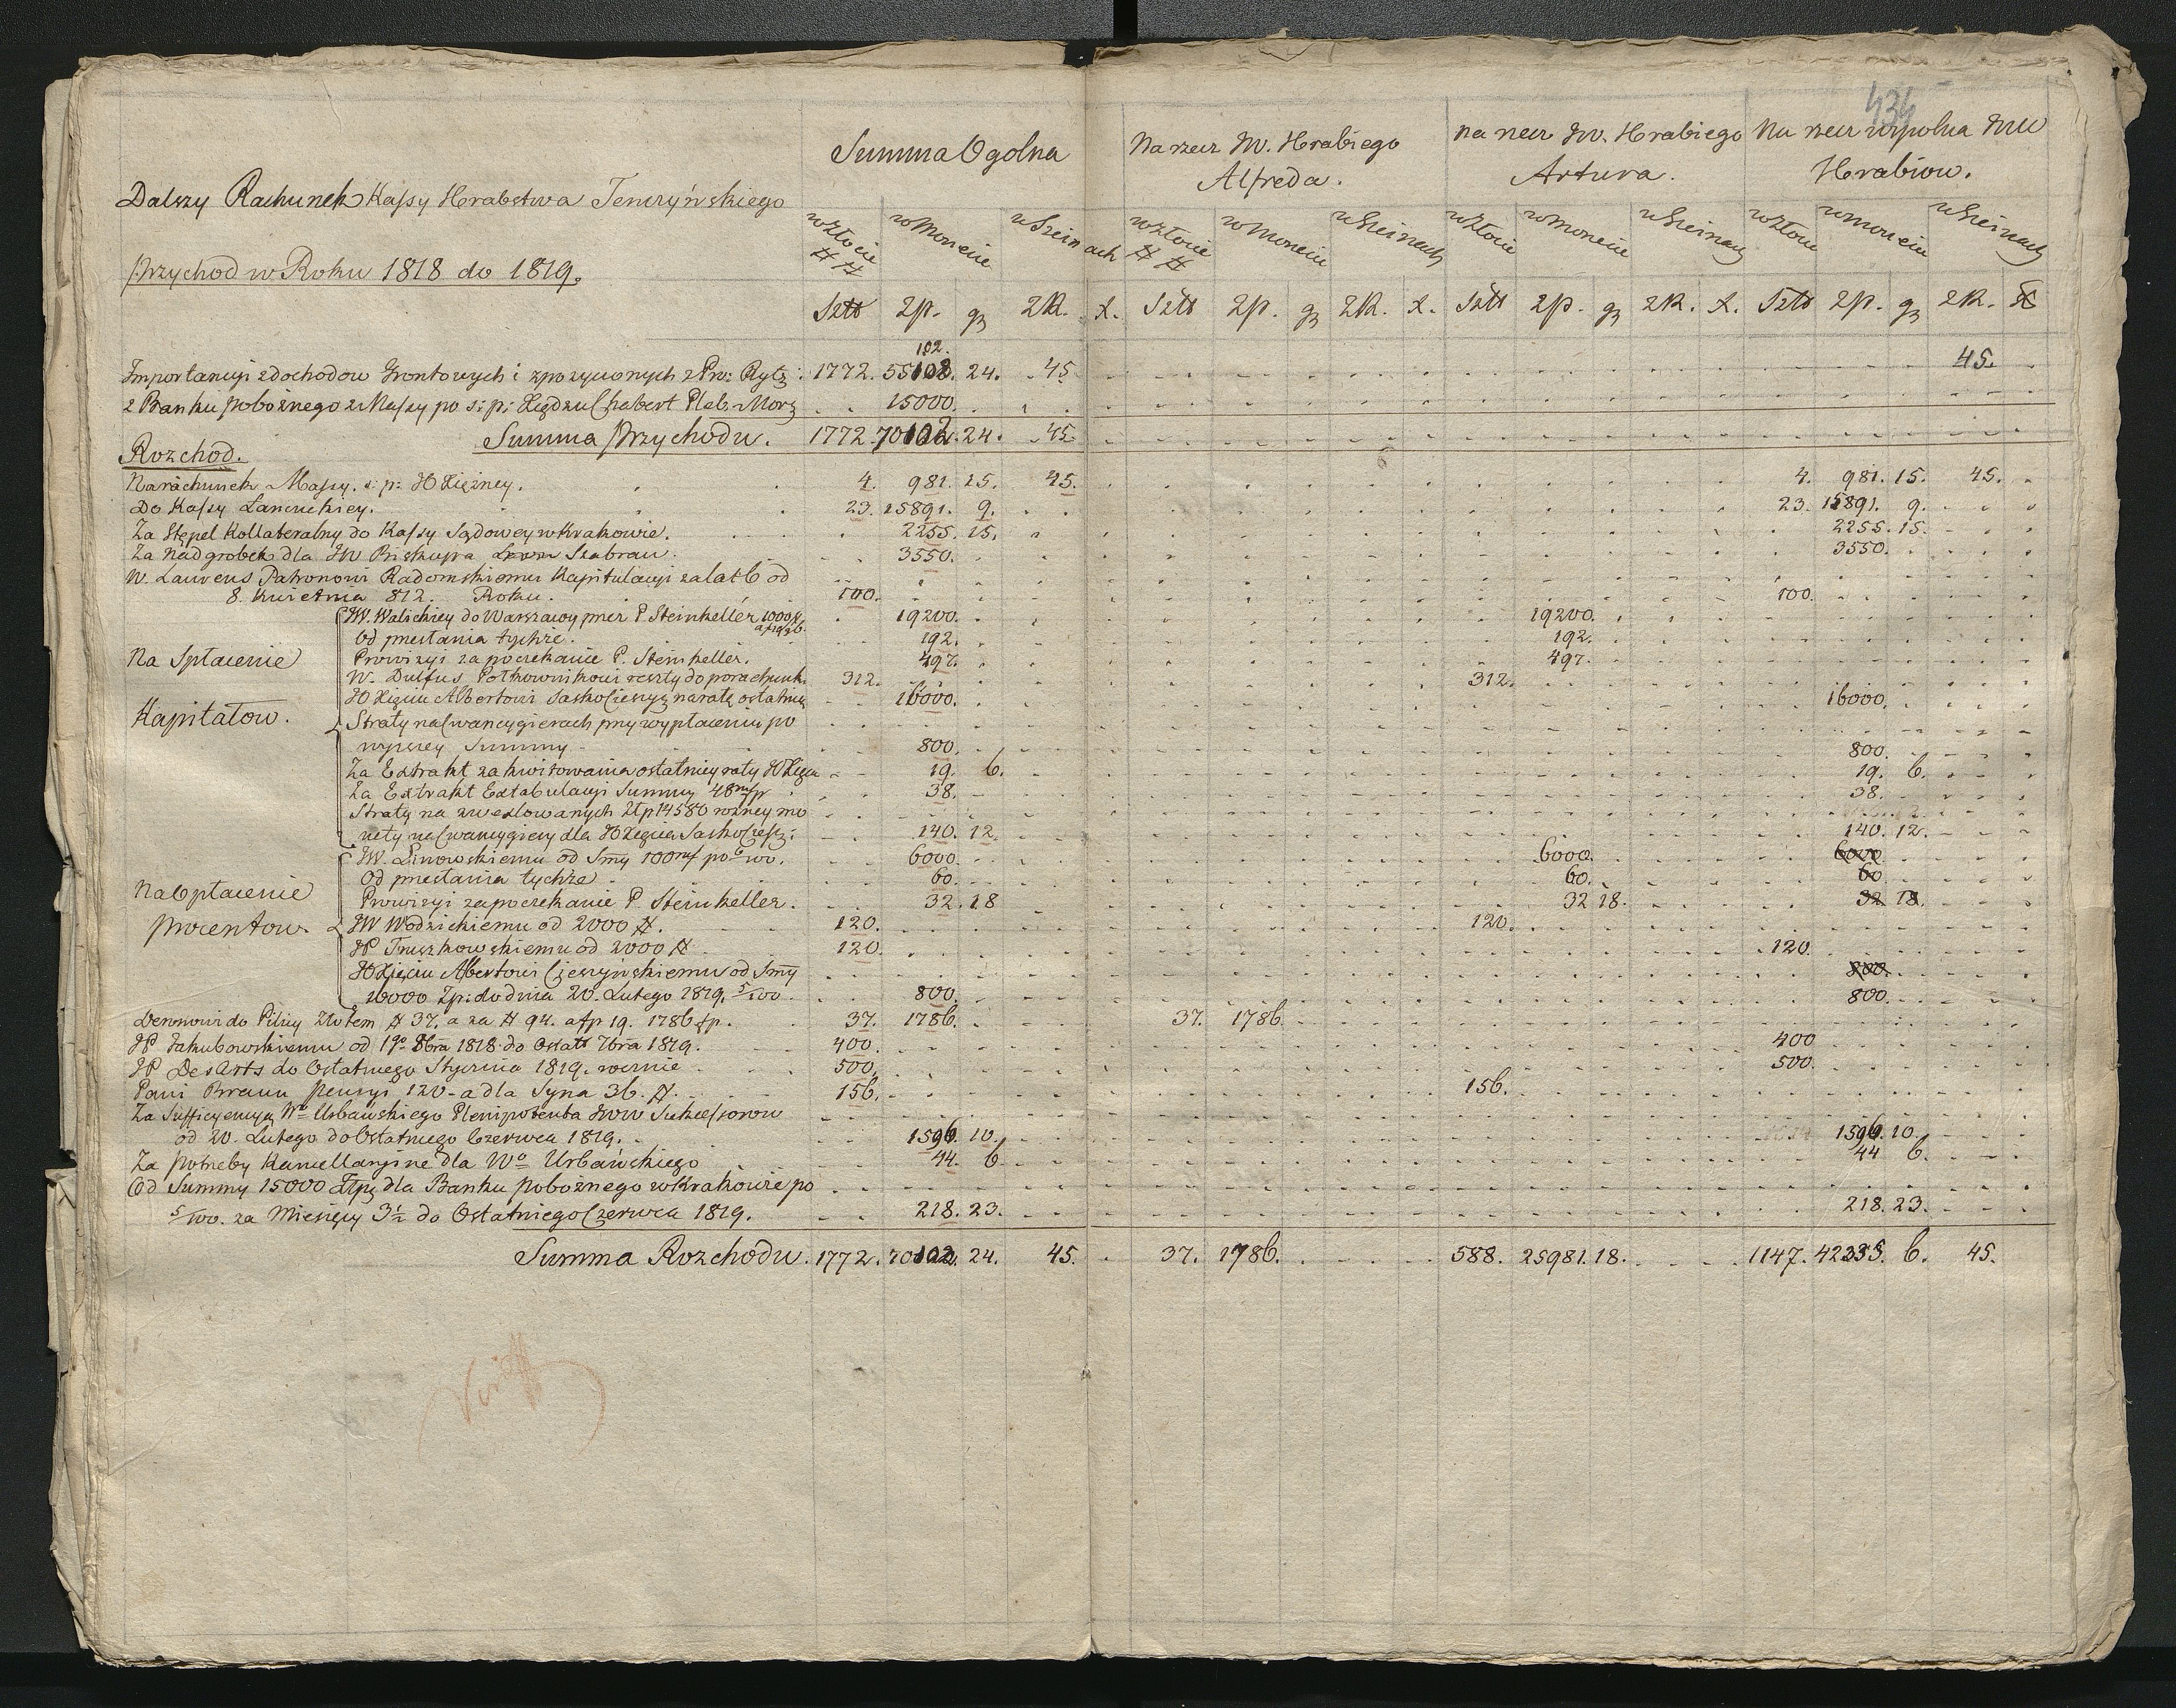 434
Summa Ogolna
Na rzecz JW. Hrabiego Alfreda.
na rzecz JW. Hrabiego Artura.
Na rzecz wspolna JWW Hrabiow.
Dalszy Rachunek Kassy Hrabstwa Tenczyńskiego
Przychod w Roku 1818 do 1819.
w Złocie ## w Monecie w Szeinach w Złocie ## w Monecie w Szeinach w Złocie w Monecie w Szeinach w Złocie w Monecie w Szeinach
Sztt Zp. gr ZR. X. Sztt Zp. gr ZR. X. Sztt Zp. gr ZR. X. Sztt Zp. gr ZR. X
102.
Importancyi z dochodow Grontowych i z pozyczonych z Prw: Rytz. 1772. 55102. 24. 45. 45.
z Banku pobożnego z Kassy po s: p: Xiędzu Chabert Pleb. Morz 15000.
Summa Przychodu. 1772. 70102. 24. 45.
Rozchod.
Na rachunek Massy. s: p: JO Xiężney. 4. 981. 15. 45. 4. 981. 15. 45.
Do Kassy Łancuckiey. 23. 15891. 9. 23. 15891. 9.
Za Stępel Kollateralny do Kassy Sądowey w Krakowie. 2255. 15. 2255. 15.
Za Nadgrobek dla JW Biskupa Szabrau. 3550. 3550.
W. Laurens Patronowi Radomskiemu Kapitulacyi za lat 6 od
8. Kwietnia 812. Roku. 100. 100.
Na Spłacenie Kapitałow.
JW. Walickiey do Warszawy przez P. Steinkeller 1000# 19200. 19200.
Od przesłania tychże. 192. 192.
Prowizyi za poczekanie P. Steinkeller. 497. 497.
W. Dulfus Połkownikowi reszty do porachunk. 312. 312.
JO Xięciu Albertowi Sasko Cieszyź na ratę ostatnią 16000. 16000.
Straty na Cwancygierach przy wypłaceniu po
wyższey Summy 800. 800.
Za Extrakt zakwitowania ostatniey raty JO Xięcia 19. 6. 19. 6.
Za Extrakt Extabulacyi Summy 48m/p 38. 38.
Straty na zwexlowanych Złp 14580 rożney mo
nety na Cwancygiery dla JO Xięcia Sasko Ciesz: 140. 12. 140. 12.
Na Opłacenie procentow.
JW. Linowskiemu od Smy 100m/ po 6/100. 6000. 6000. 6000
Od przesłania tychże 60. 60. 60
Prowizyi za poczekanie P. Steinkeller. 32. 18 32 18. 32 18.
JW Wodzickiemu od 2000 #. 120. 120.
JP Truszkowskiemu od 2000 # 120. 120.
JO Xięciu Albertowi Cieszyńskiemu od Smy 800.
16000 Zp: do dnia 20. Lutego 1819. 5/100. 800. 800.
Deronowi do Pilicy Złotem # 37. a za # 94. a fp 19. 1786 fp. 37. 1786. 37. 1786.
JP Jakubowskiemu od 1go 8bra 1818 do Ostatt 7bra 1819. 400. 400
JP DesArts do Ostatniego Stycznia 1819. rocznie 500. 500.
Pani Braun pensyi 120 - a dla Syna 36. #. 156. 156.
Za Sufficyencyą Wo Urbańskiego Plenipotenta JWW Sukcessorow
od 20. Lutego do Ostatniego Czerwca 1819. 1596. 10. 1596. 10.
Za potrzeby Kancellaryine dla Wo Urbańskiego 44. 6. 44 6.
Od Summy 15000 Złp dla Banku pobożnego w Krakowie po
5/100. za Miesięcy 3½ do Ostatniego Czerwca 1819. 218. 23. 218. 23.
Summa Rozchodu. 1772. 70102. 24. 45. 37. 1786. 588. 25981. 18. 1147. 42335. 6. 45.